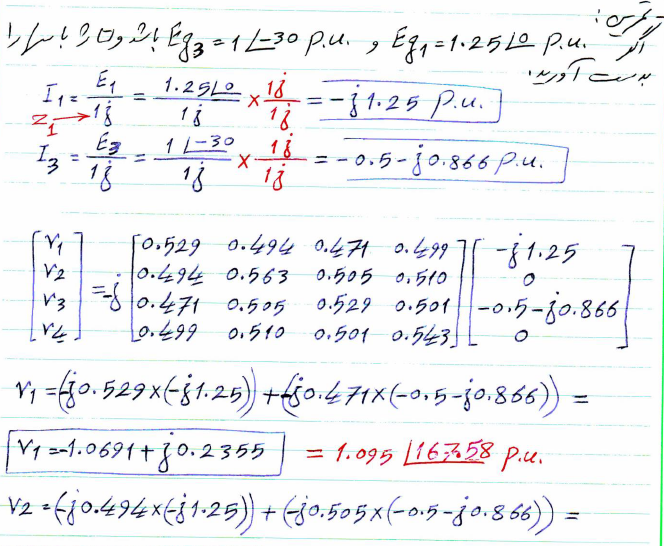 تمرین:
اگر Eg1=1.25∠0 P.u. و Eg3=1∠-30 P.u. باشد ولتاژ باسها را
بدست آورید.
I1 = E1/1j = 1.25∠0/1j × 1j/1j = -j1.25 P.u.
Z1→
I3 = E3/1j = 1∠-30/1j × 1j/1j = -0.5-j0.866 P.u.
[V1] [0.529 0.494 0.471 0.499] [-j1.25]
[V2] [0.494 0.563 0.505 0.510] [0]
=-j
[V3] [0.471 0.505 0.529 0.501] [-0.5-j0.866]
[V4] [0.499 0.510 0.501 0.543] [0]
V1=(-j0.529×(-j1.25))+(-j0.471×(-0.5-j0.866)) =
V1=-1.0691+j0.2355 = 1.095∠167.58 P.u.
V2=(-j0.494×(-j1.25))+(-j0.505×(-0.5-j0.866)) =